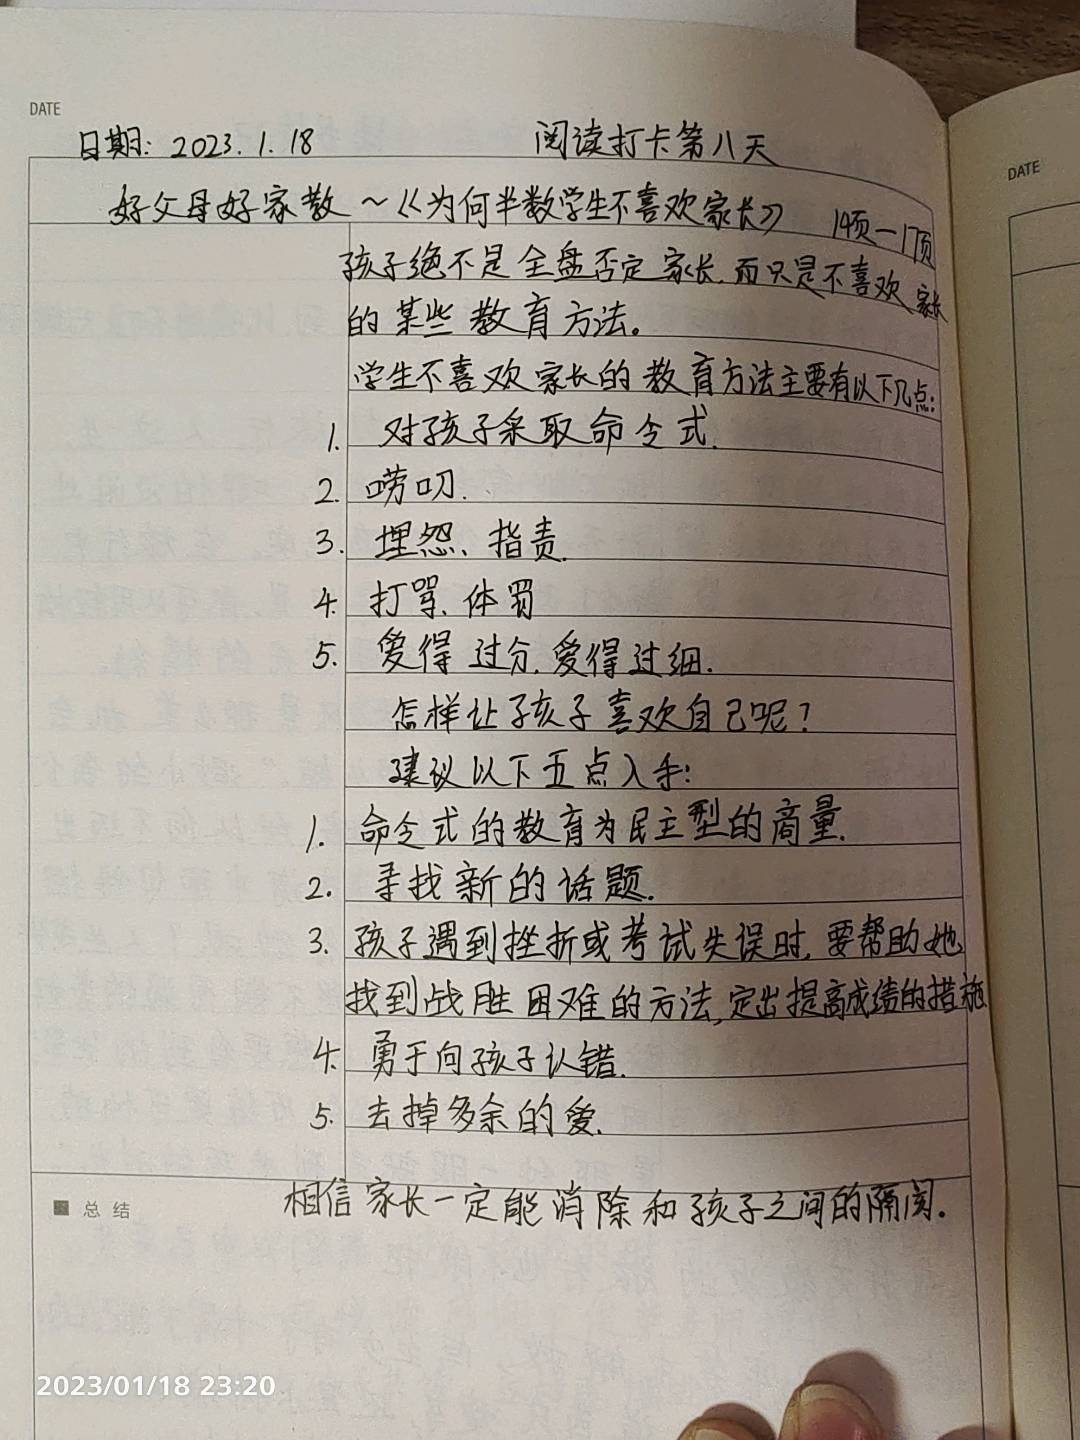 DATE
日期: 2023.1.18 阅读打卡第八天
DATE
好父母好家教～《为何半数学生不喜欢家长》 14页—17页
孩子绝不是全盘否定家长,而只是不喜欢家长
的某些教育方法。
学生不喜欢家长的教育方法主要有以下几点:
1. 对孩子采取命令式.
2. 唠叨.
3. 埋怨、指责.
4. 打骂、体罚
5. 爱得过分,爱得过细.
怎样让孩子喜欢自己呢?
建议以下五点入手:
1. 命令式的教育为民主型的商量.
2. 寻找新的话题.
3. 孩子遇到挫折或考试失误时,要帮助她
找到战胜困难的方法,定出提高成绩的措施.
4. 勇于向孩子认错.
5. 去掉多余的爱.
总结
相信家长一定能消除和孩子之间的隔阂.
2023/01/18 23:20